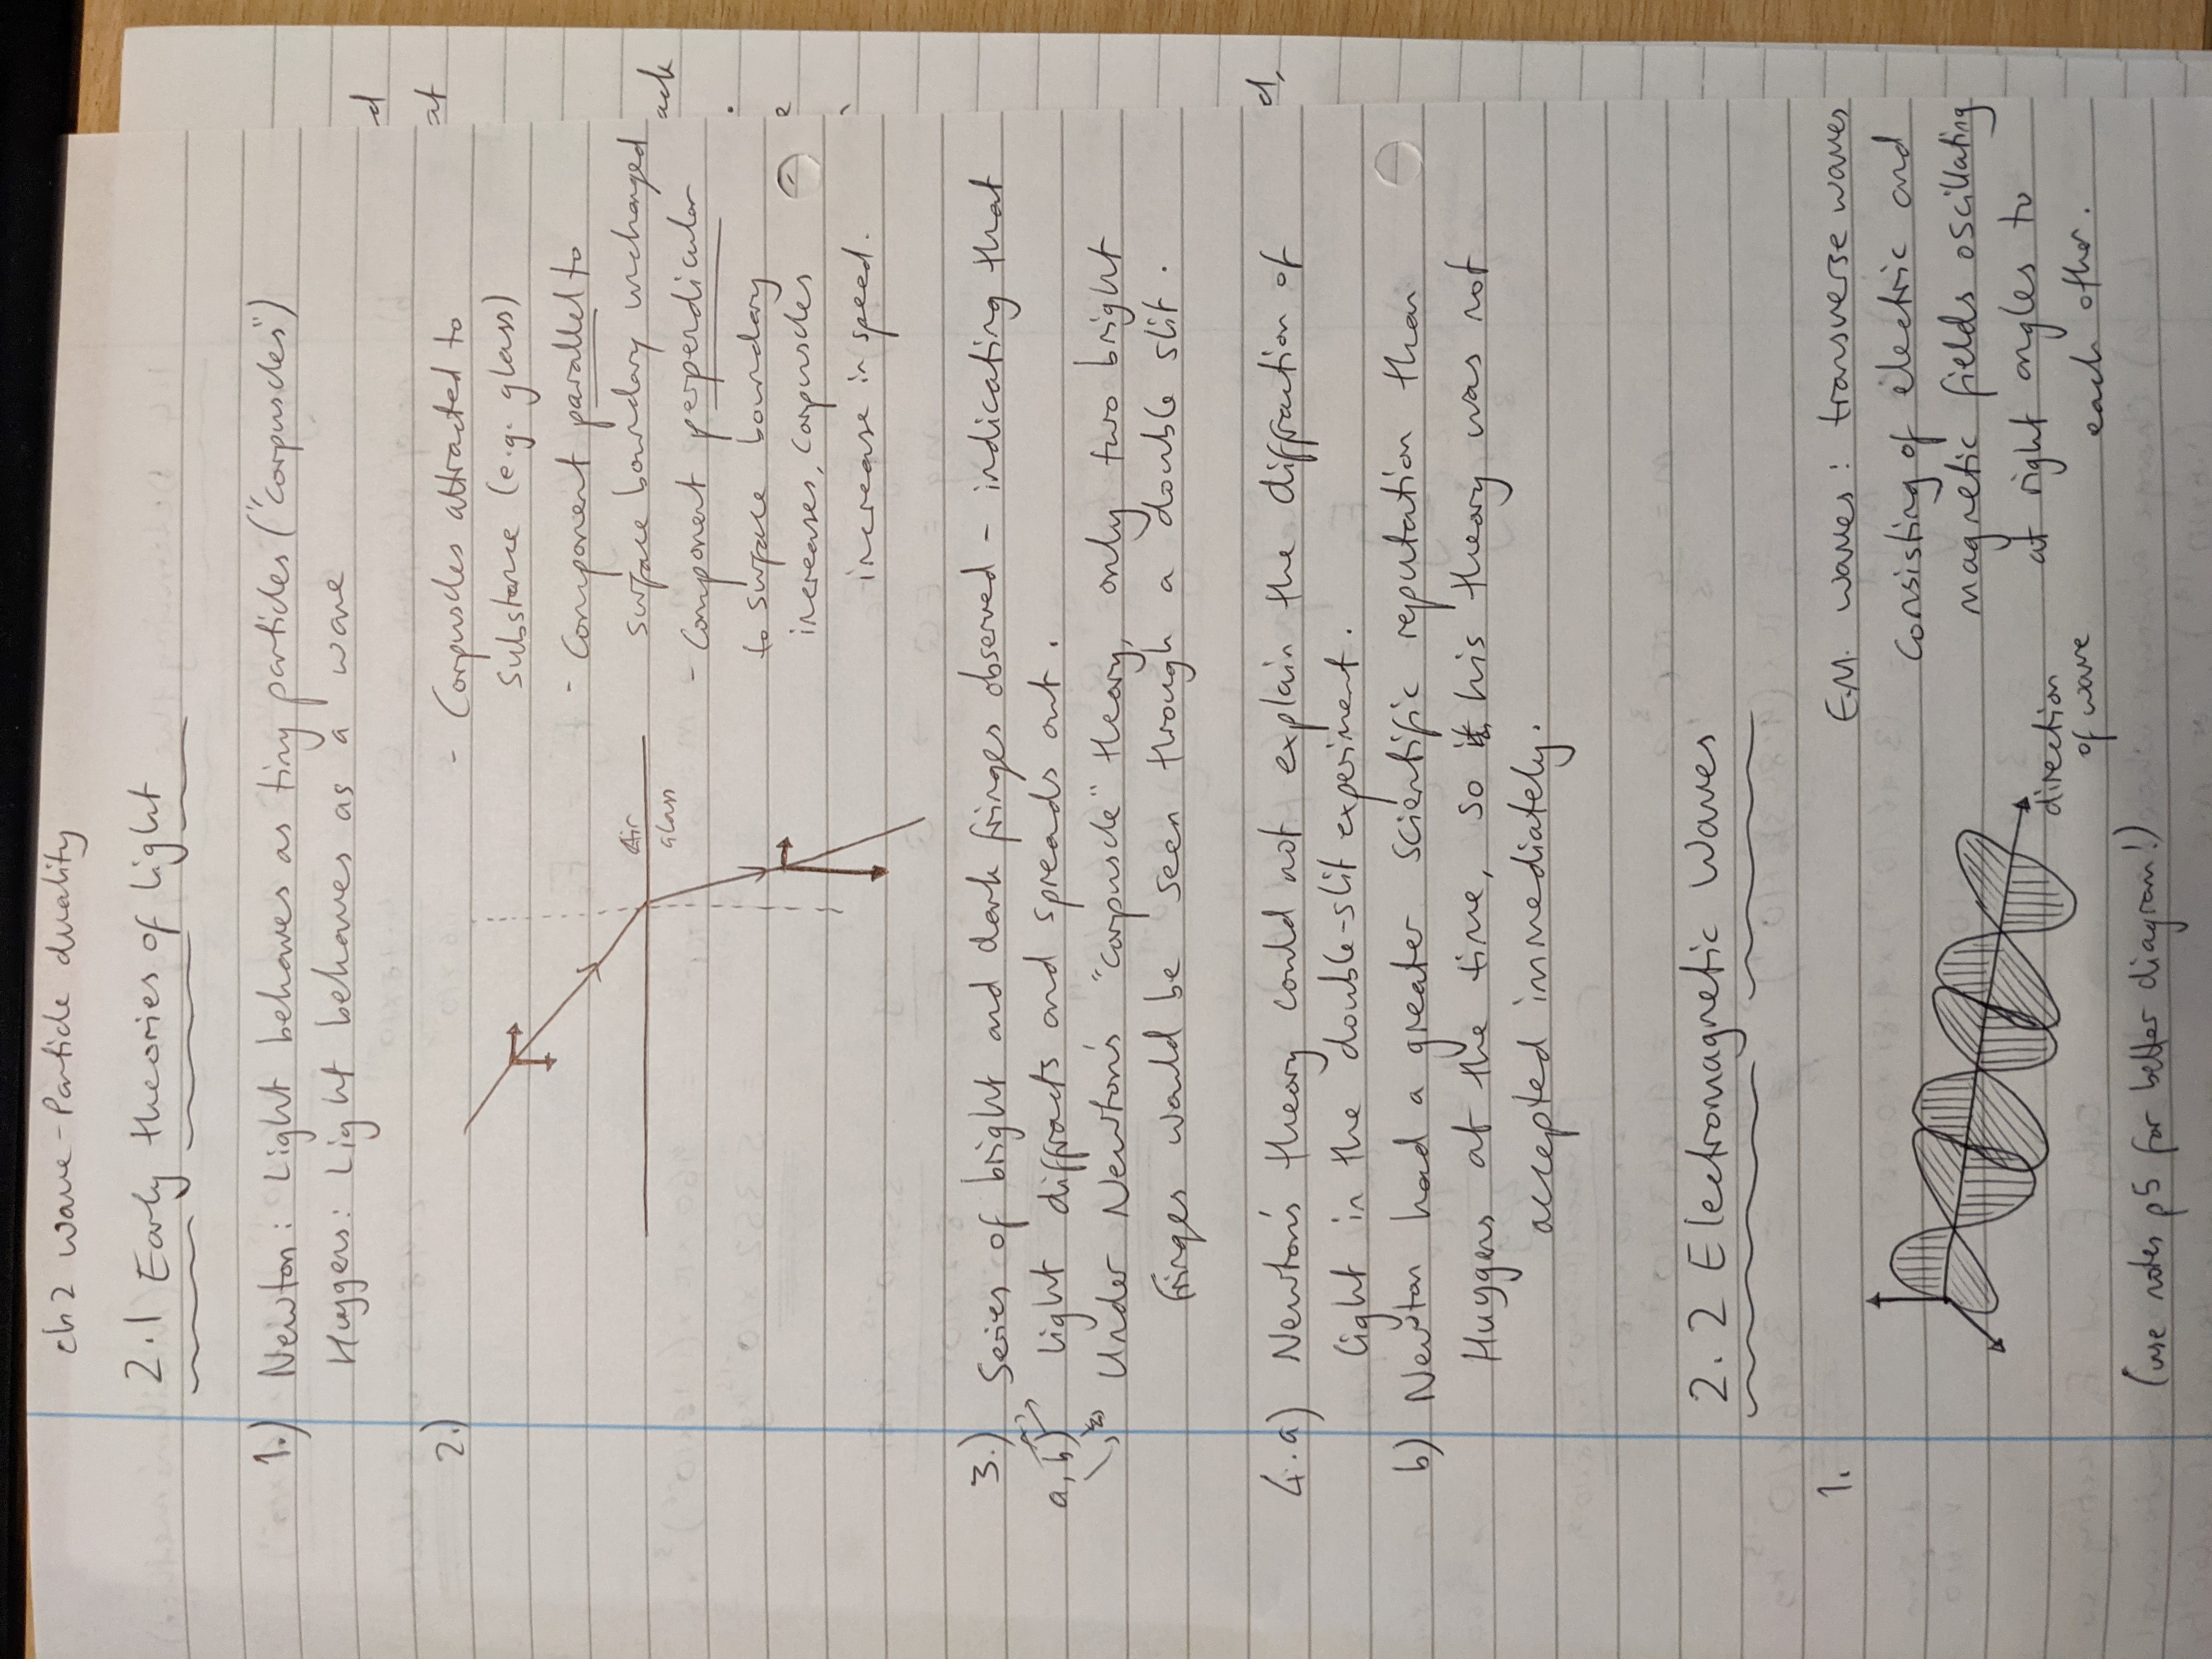 ch 2 wave-Particle duality
2.1 Early theories of light
1.) Newton: Light behaves as tiny particles ("corpuscles")
Huygens: Light behaves as a wave
2.)
- Corpuscles attracted to
substance (e.g. glass)
- Component parallel to
surface boundary unchanged
- Component perpendicular
to surface boundary
increases, corpuscles
increase in speed.
Air
glass
3.) Series of bright and dark fringes observed - indicating that
a, b) light diffracts and spreads out.
Under Newton's "corpuscle" theory, only two bright
fringes would be seen through a double slit.
4.a) Newton's theory could not explain the diffraction of
light in the double-slit experiment.
b) Newton had a greater scientific reputation than
Huygens at the time, so his theory was not
accepted immediately.
2.2 Electromagnetic Waves
1.
E.M. waves: transverse waves
consisting of electric and
magnetic fields oscillating
at right angles to
each other.
direction
of wave
(use notes p5 for better diagram!)
d
at
ack
e
d,